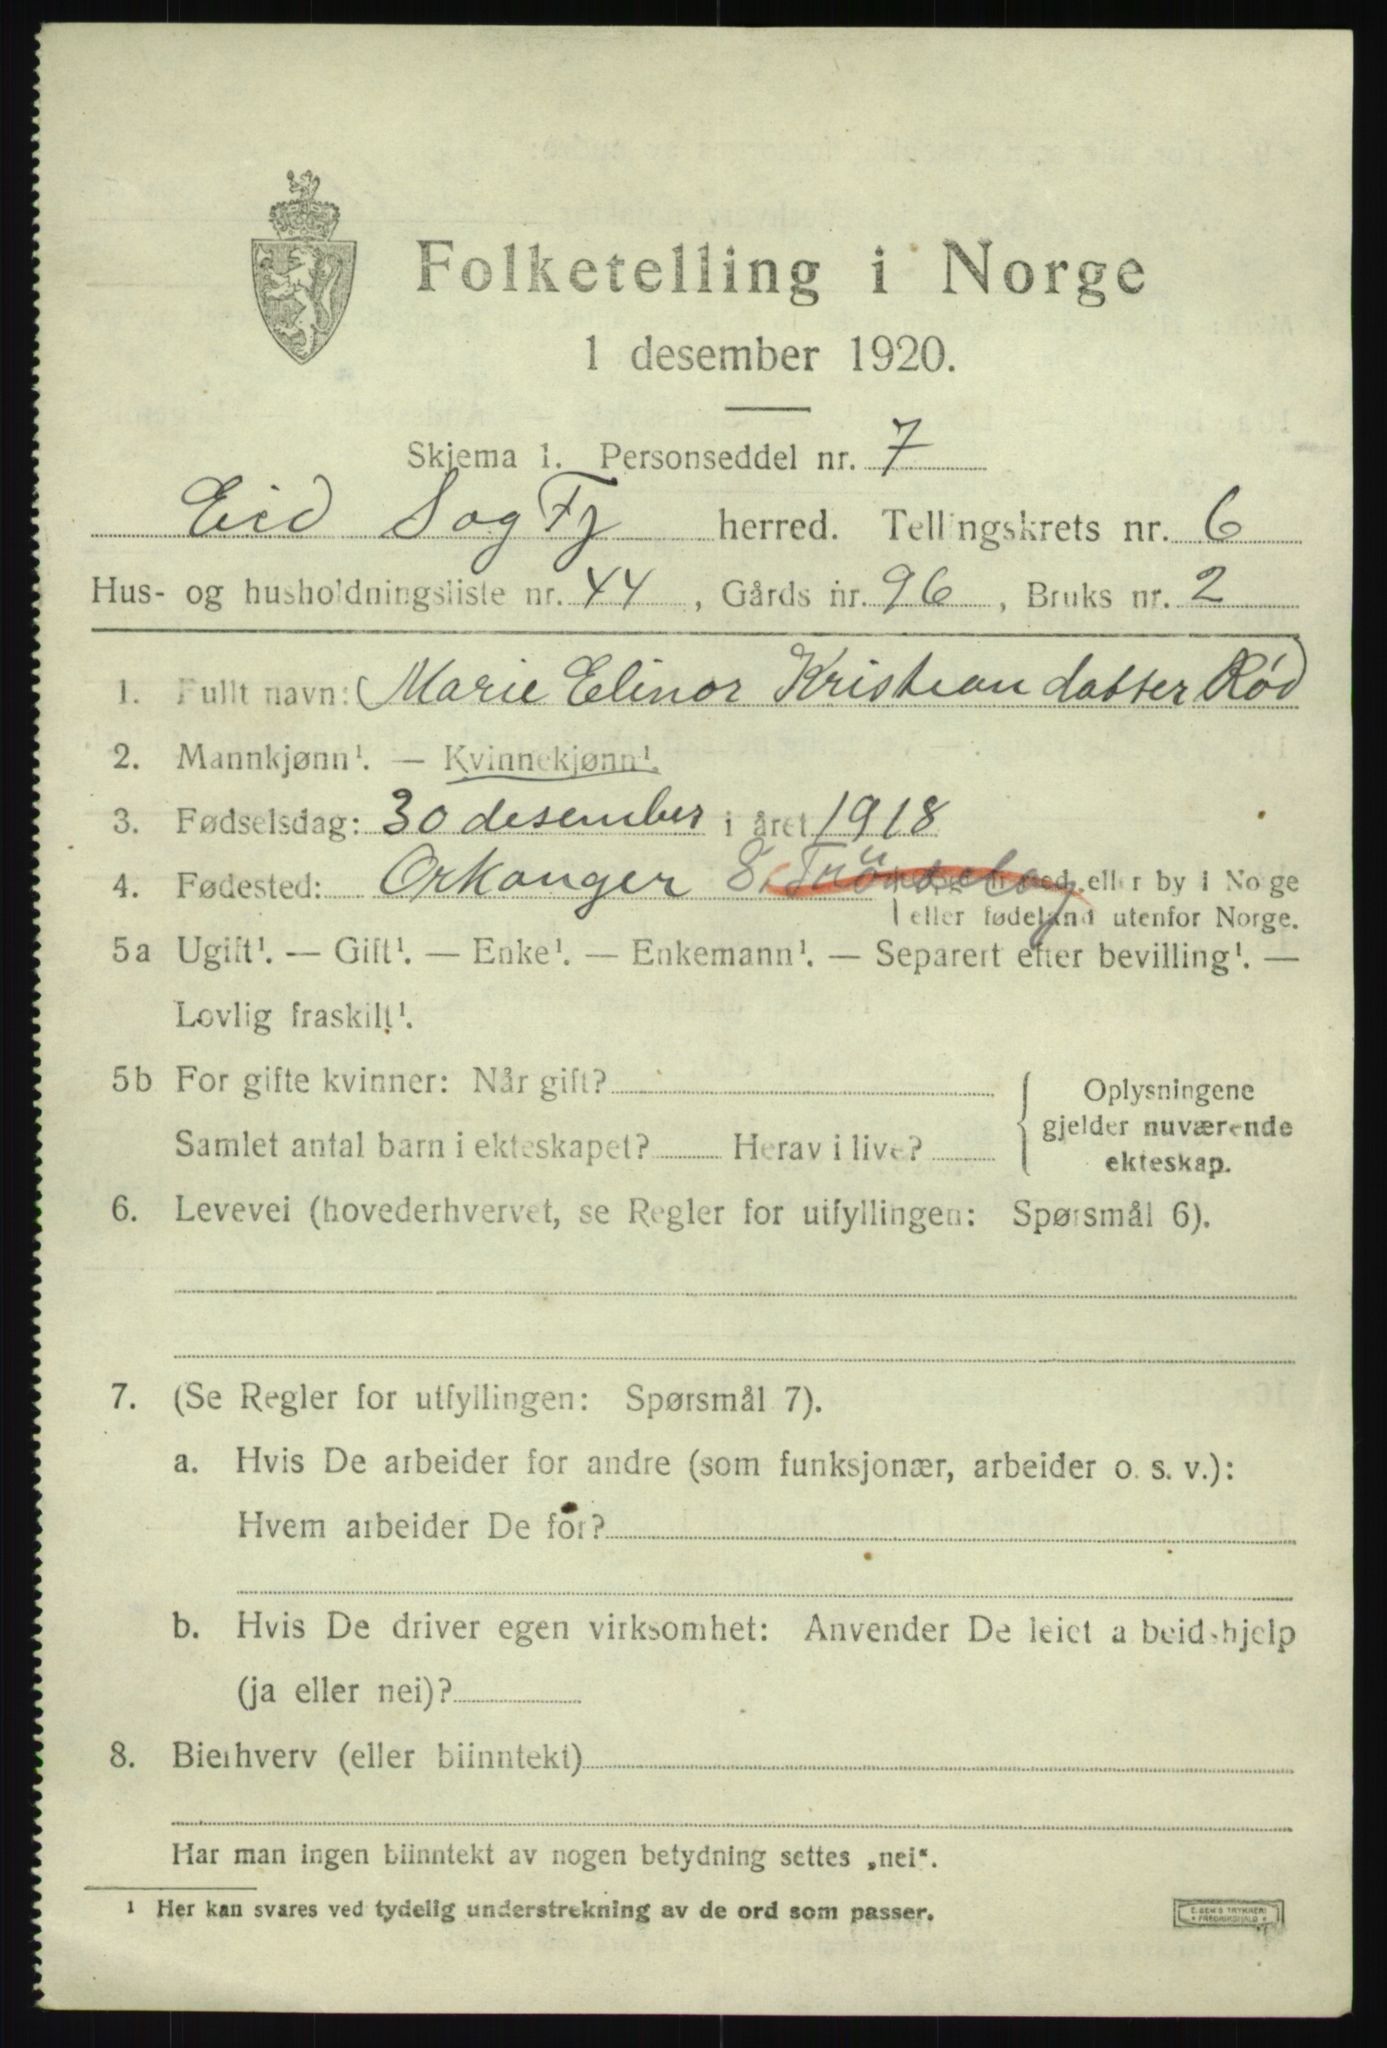 Folketelling i Norge
1 desember 1920.
Skjema 1. Personseddel nr. 7
Eid Sog Fj herred. Tellingskrets nr. 6
Hus- og husholdningsliste nr. 44, Gårds nr. 96, Bruks nr. 2
1. Fullt navn: Marie Elinor Kristian datter Rød
2. Mannkjønn¹. — Kvinnekjønn¹.
3. Fødselsdag: 30 desember i året 1918
4. Fødested: Orkanger S. Tröndelag eller by i Norge
eller fødeland utenfor Norge.
5a Ugift¹. — Gift¹. — Enke¹. — Enkemann¹. — Separert efter bevilling¹. —
Lovlig fraskilt¹.
5b For gifte kvinner: Når gift?
Samlet antal barn i ekteskapet? Herav i live?
Oplysningene
gjelder nuværende
ekteskap.
6. Levevei (hovederhvervet, se Regler for utfyllingen: Spørsmål 6).
7. (Se Regler for utfyllingen: Spørsmål 7).
a. Hvis De arbeider for andre (som funksjonær, arbeider o. s. v.):
Hvem arbeider De for?
b. Hvis De driver egen virksomhet: Anvender De leiet arbeidshjelp
(ja eller nei)?
8. Bierhverv (eller biinntekt)
Har man ingen biinntekt av nogen betydning settes „nei“.
¹ Her kan svares ved tydelig understrekning av de ord som passer.
E. SEM'S TRYKKERI
FREDRIKSHALD